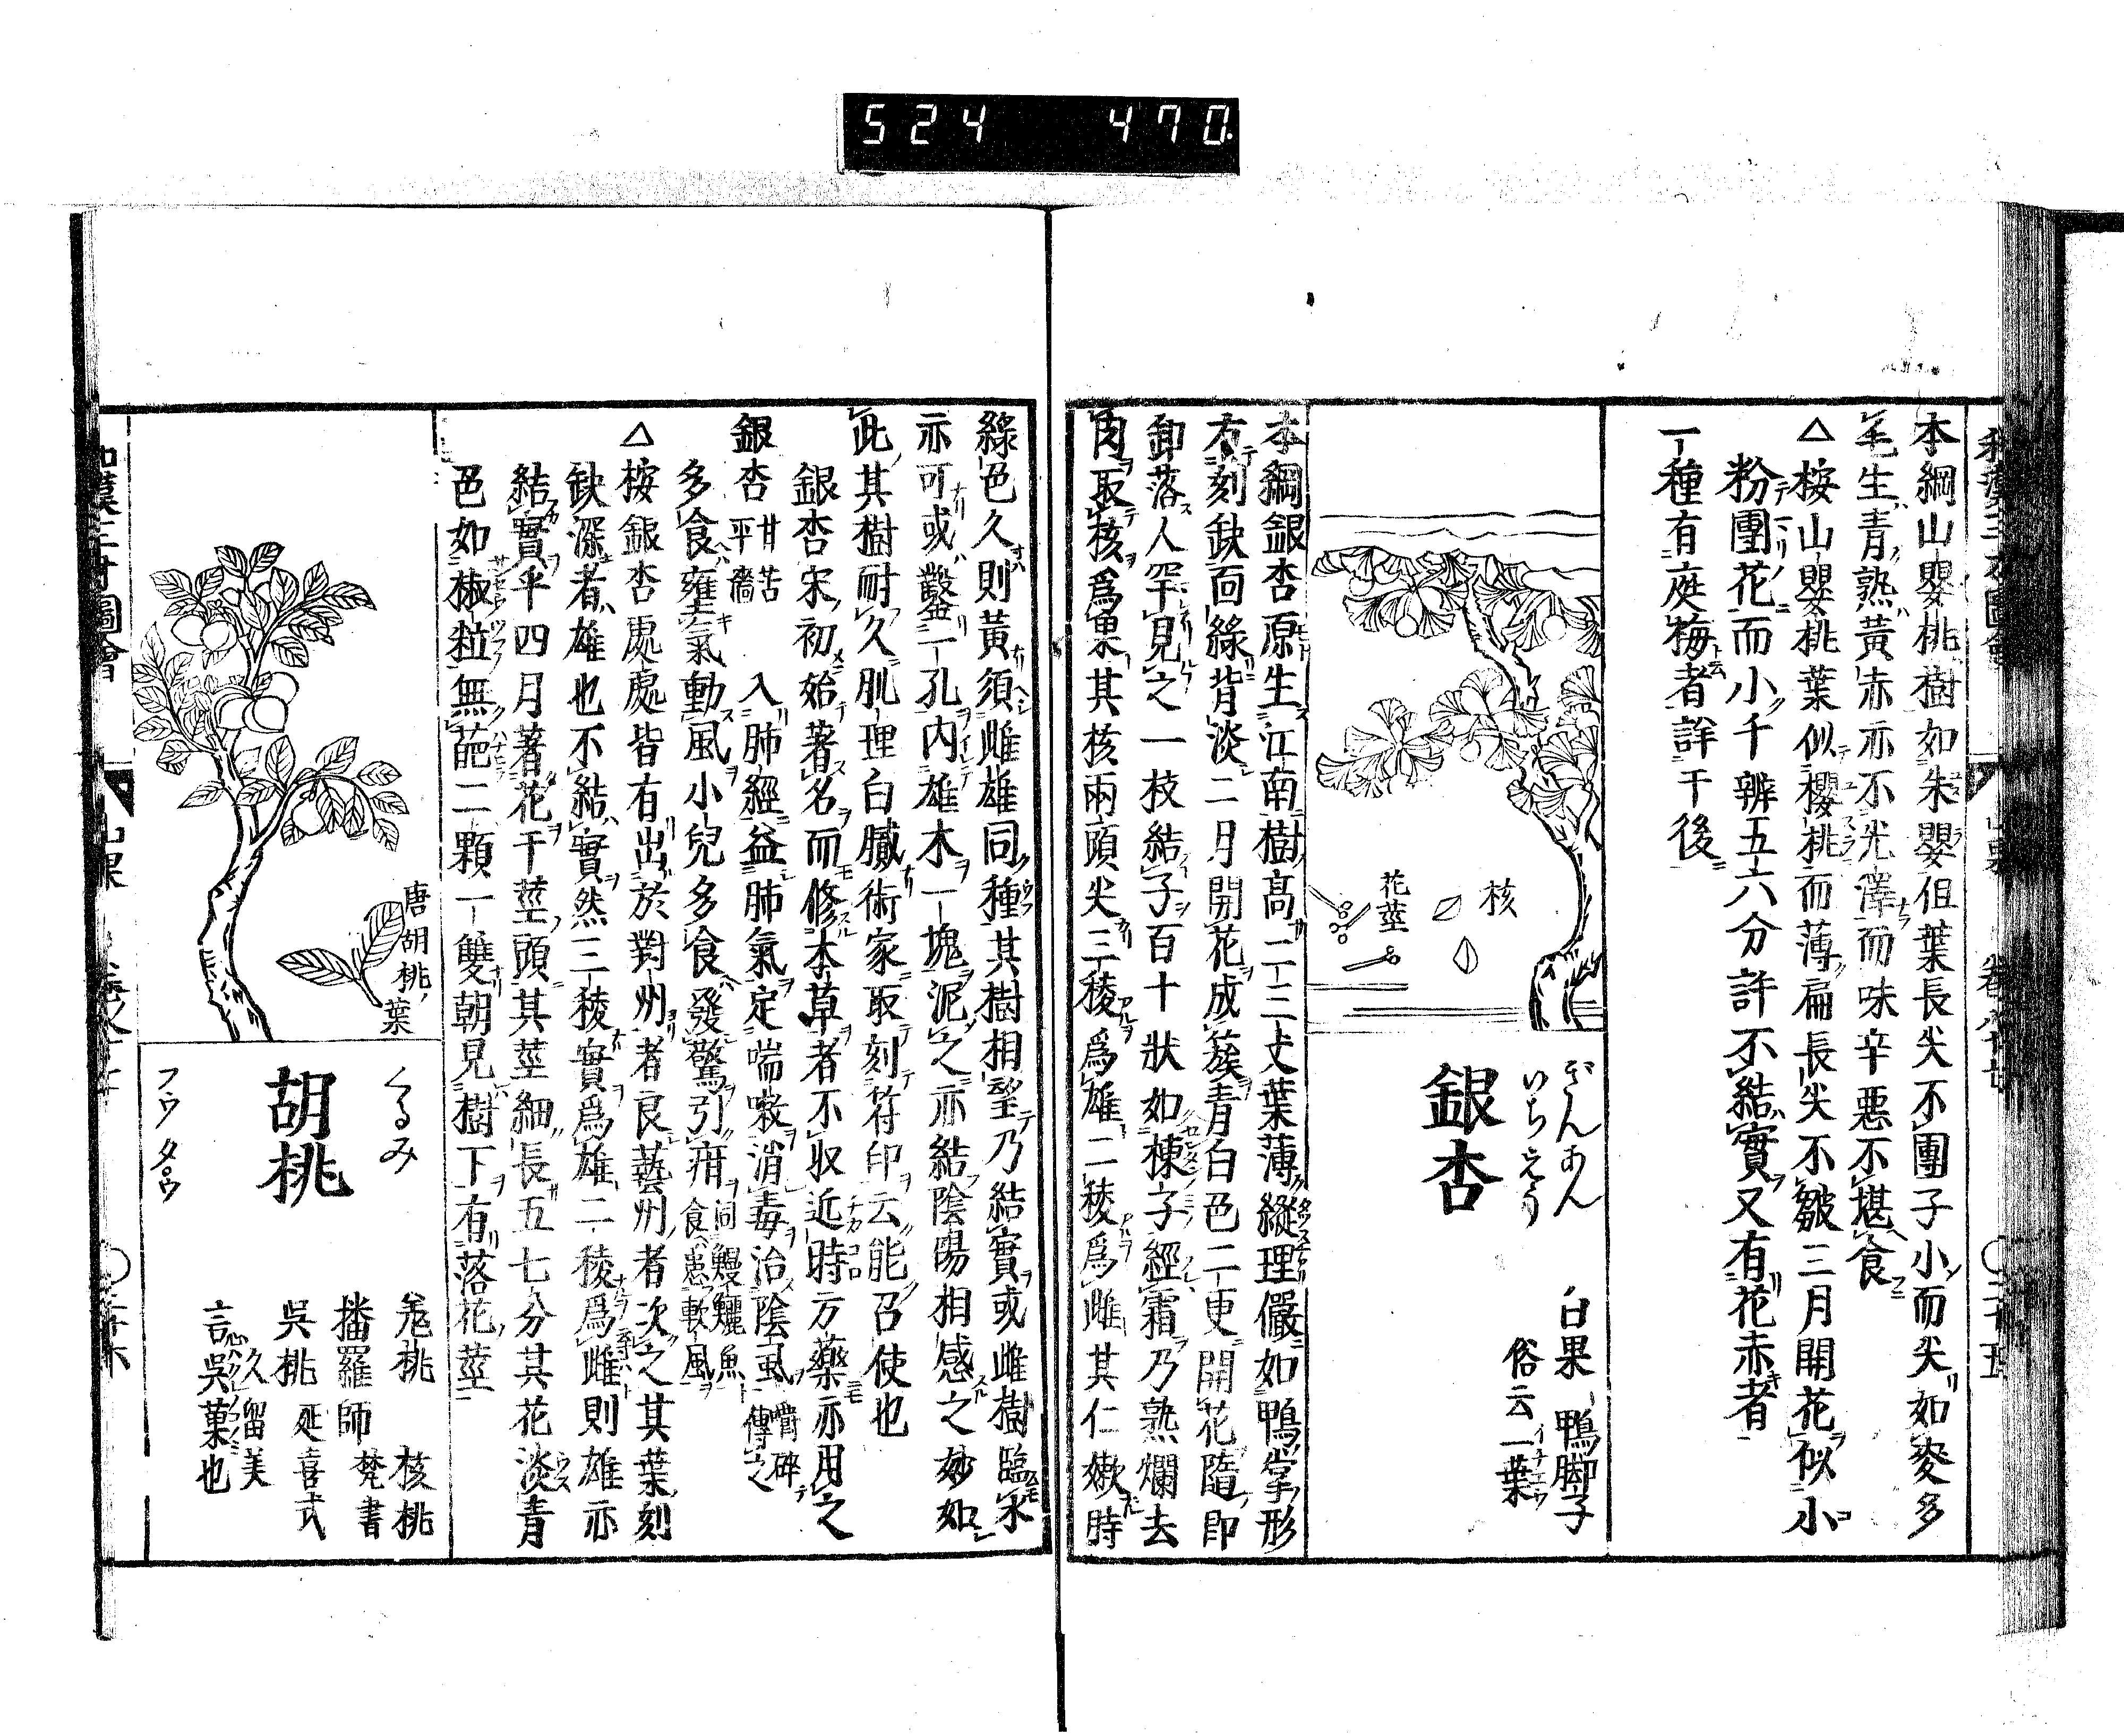 524 470
本綱山嬰桃樹如朱嬰但葉長尖不團子小而尖如麥多
毛生青熟黃赤亦不光澤而味辛惡不堪食
△桉山嬰桃葉似櫻桃而薄扁長尖不皺三月開花似小
粉團花而小千瓣五六分許不結實又有花赤者
一種有庭梅者詳于後
核
花莖
ぎんあん
いちえう
銀杏
白果 鴨脚子
俗云一葉
本綱銀杏原生江南樹高二三丈葉薄縱理儼如鴨掌形
有刻缺面綠背淡二月開花成簇青白色二更開花隨即
卸落人罕見之一枝結子百十狀如楝子經霜乃熟爛去
肉取核爲果其核兩頭尖三稜爲雄二稜爲雌其仁嫩時
綠色久則黃須雌雄同種其樹相望乃結實或雌樹臨水
亦可或鑿一孔內雄木一塊泥之亦結陰陽相感之妙如
此其樹耐久肌理白膩術家取刻符印云能召使也
銀杏宋初始著名而修本草者不收近時方藥亦用之
銀杏 甘苦平濇 入肺經益肺氣定喘嗽消毒治陰虱 嚼碎傅之
多食壅氣動風小兒多食發驚引疳 同鰻鱺魚食患軟風
△桉銀杏處處皆有出於對州者良藝州者次之其葉刻
缺深者雄也不結實然三稜實爲雄二稜爲雌則雄亦
結實乎四月著花于莖頭其莖細長五七分其花淡青
色如椒粒無葩二顆一雙朝見樹下有落花莖
唐胡桃葉
くるみ
胡桃
フウ タ゚ウ
羌桃 核桃
播羅師 梵書
吳桃 延喜式
久留美
言吳菓也